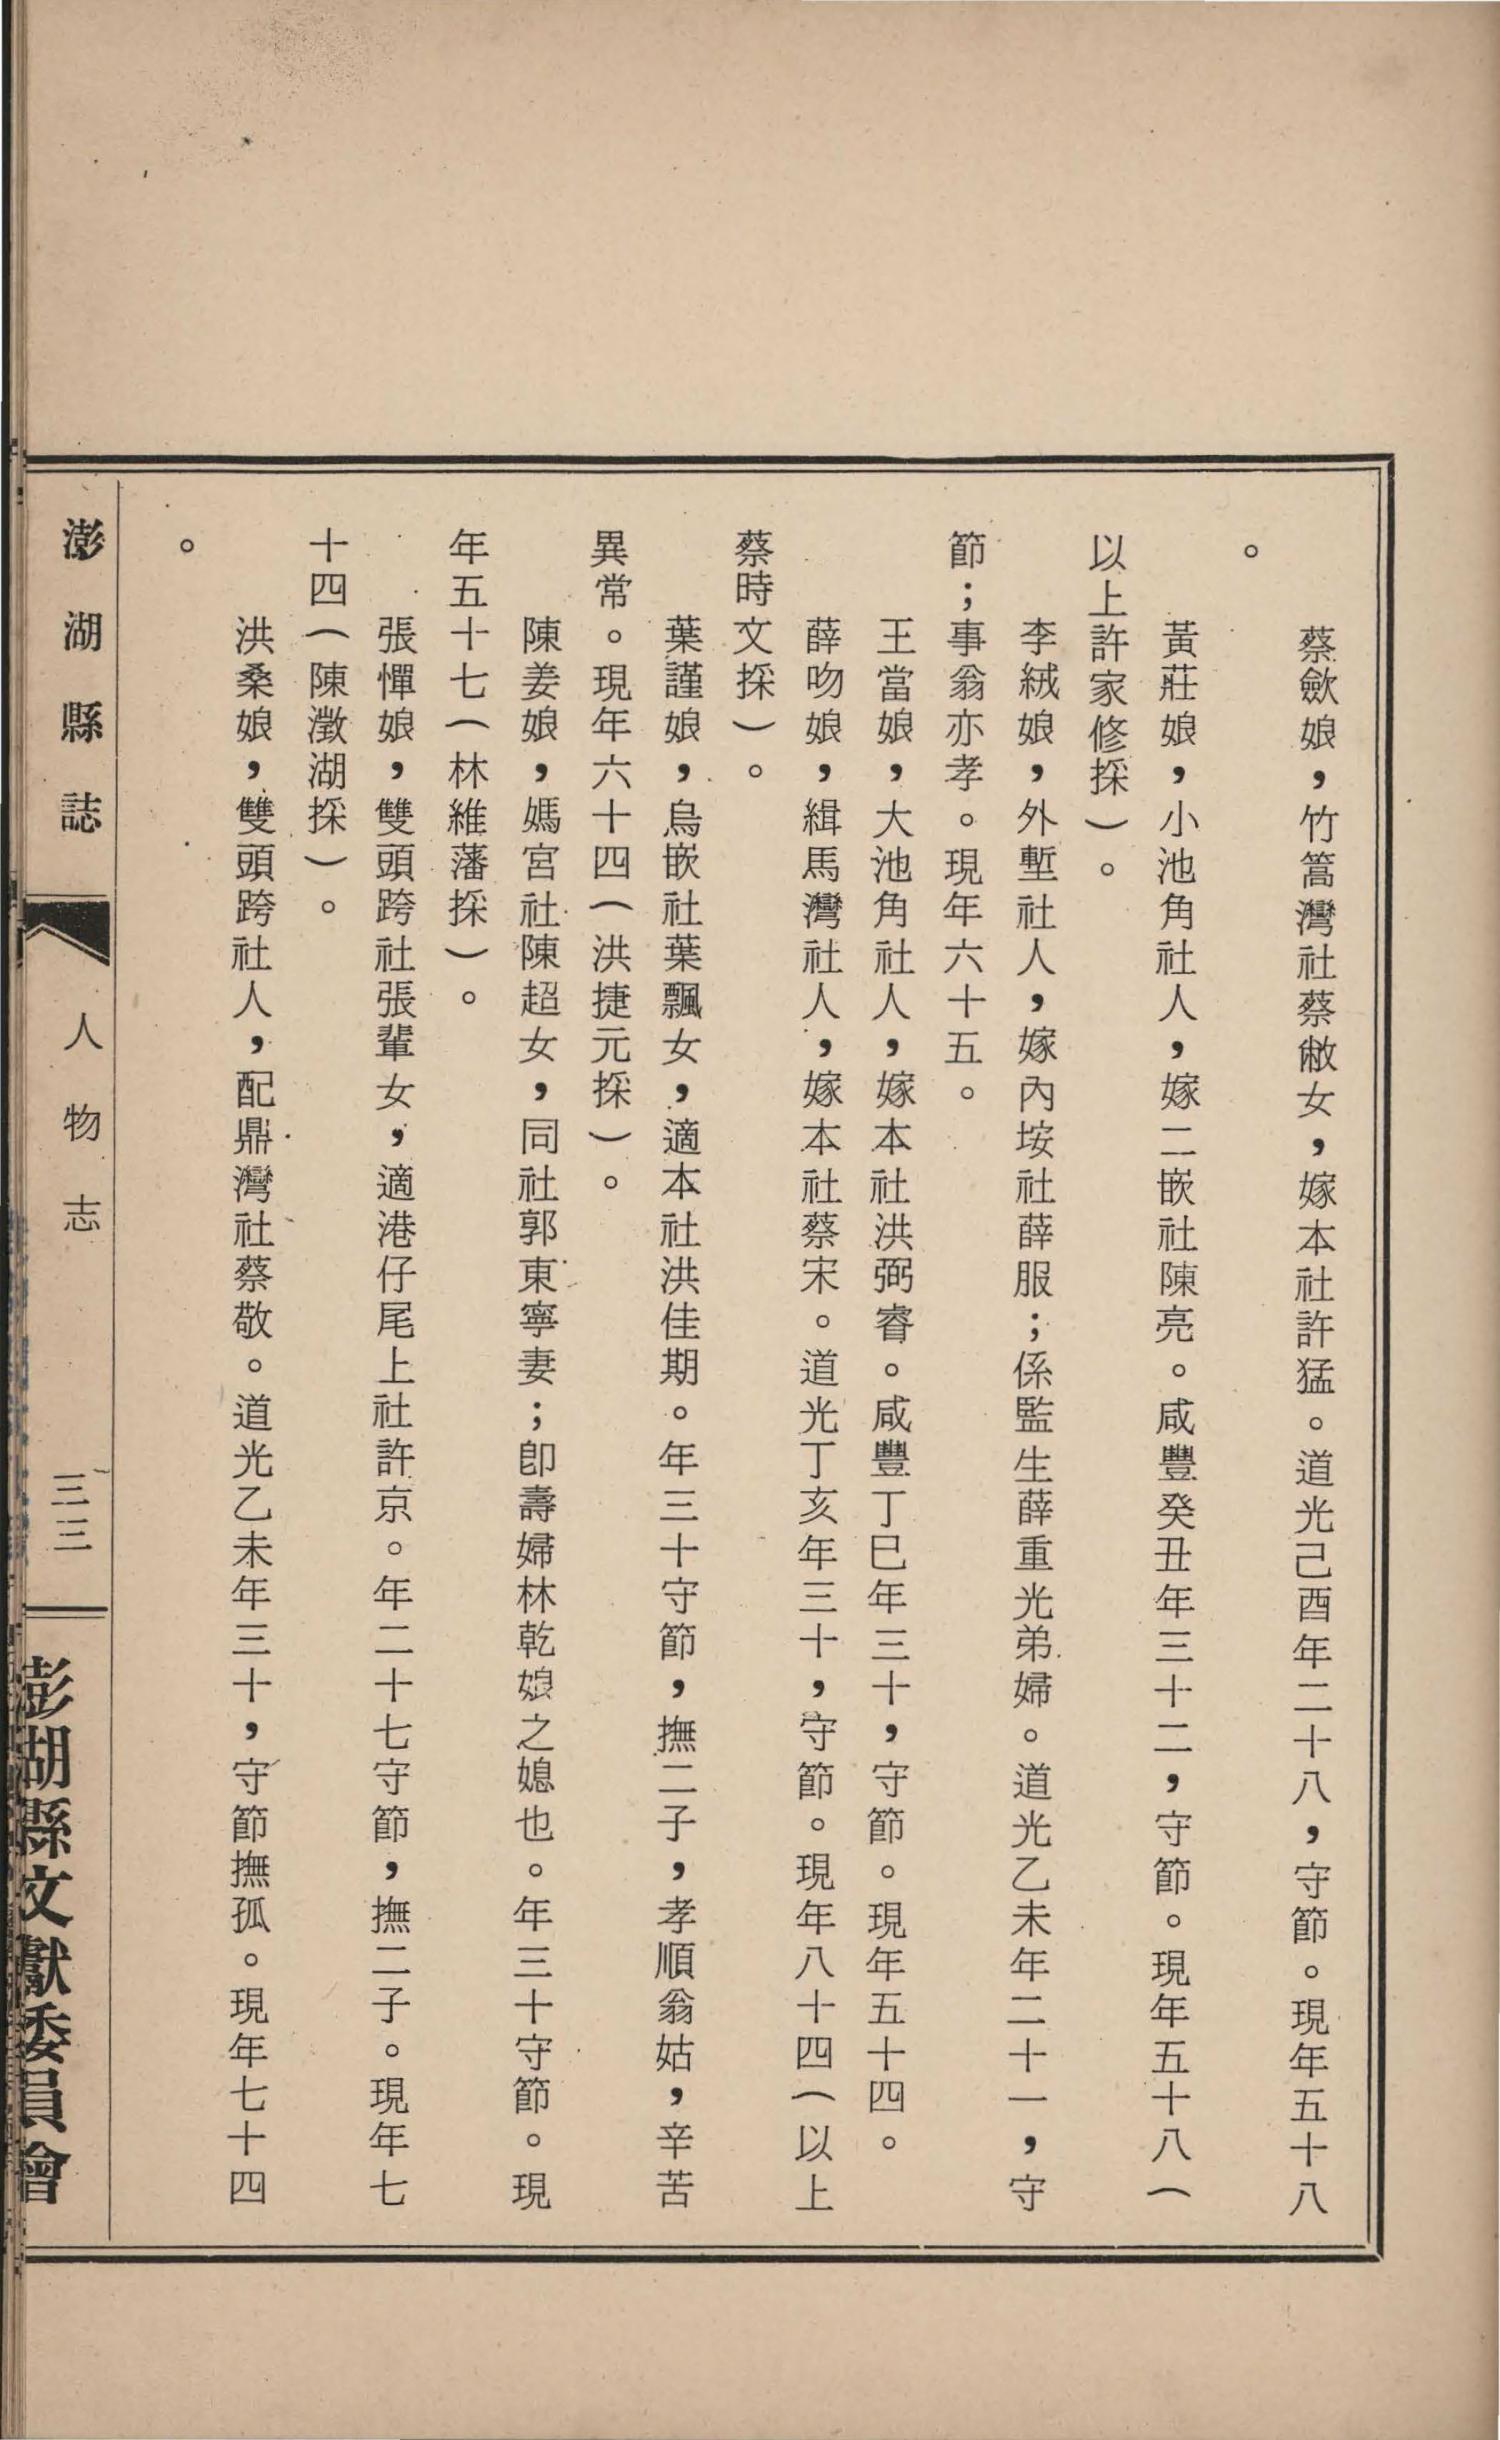 蔡歛娘，竹篙灣社蔡敝女，嫁本社許猛。道光己酉年二十八，守節。現年五十八
。
黃莊娘，小池角社人，嫁二嵌社陳亮。咸豐癸丑年三十二，守節。現年五十八（
以上許家修採）。
李絨娘，外塹社人，嫁內垵社薛服；係監生薛重光弟婦。道光乙未年二十一，守
節；事翁亦孝。現年六十五。
王當娘，大池角社人，嫁本社洪弼睿。咸豐丁巳年三十，守節。現年五十四。
薛吻娘，緝馬灣社人，嫁本社蔡宋。道光丁亥年三十，守節。現年八十四（以上
蔡時文採）。
葉謹娘，烏嵌社葉飄女，適本社洪佳期。年三十守節，撫二子，孝順翁姑，辛苦
異常。現年六十四（洪捷元採）。
陳姜娘，媽宮社陳超女，同社郭東寧妻；卽壽婦林乾娘之媳也。年三十守節。現
年五十七（林維藩採）。
張憚娘，雙頭跨社張輩女，適港仔尾上社許京。年二十七守節，撫二子。現年七
十四（陳澂湖採）。
洪桑娘，雙頭跨社人，配鼎灣社蔡敬。道光乙未年三十，守節撫孤。現年七十四
。
澎湖縣誌
人物志
三三
澎湖縣文獻委員會